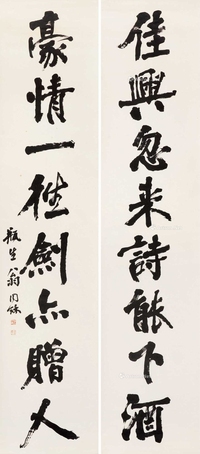 佳興忽来詩能下酒
豪情一往劍亦贈人
瓶生翁同龢